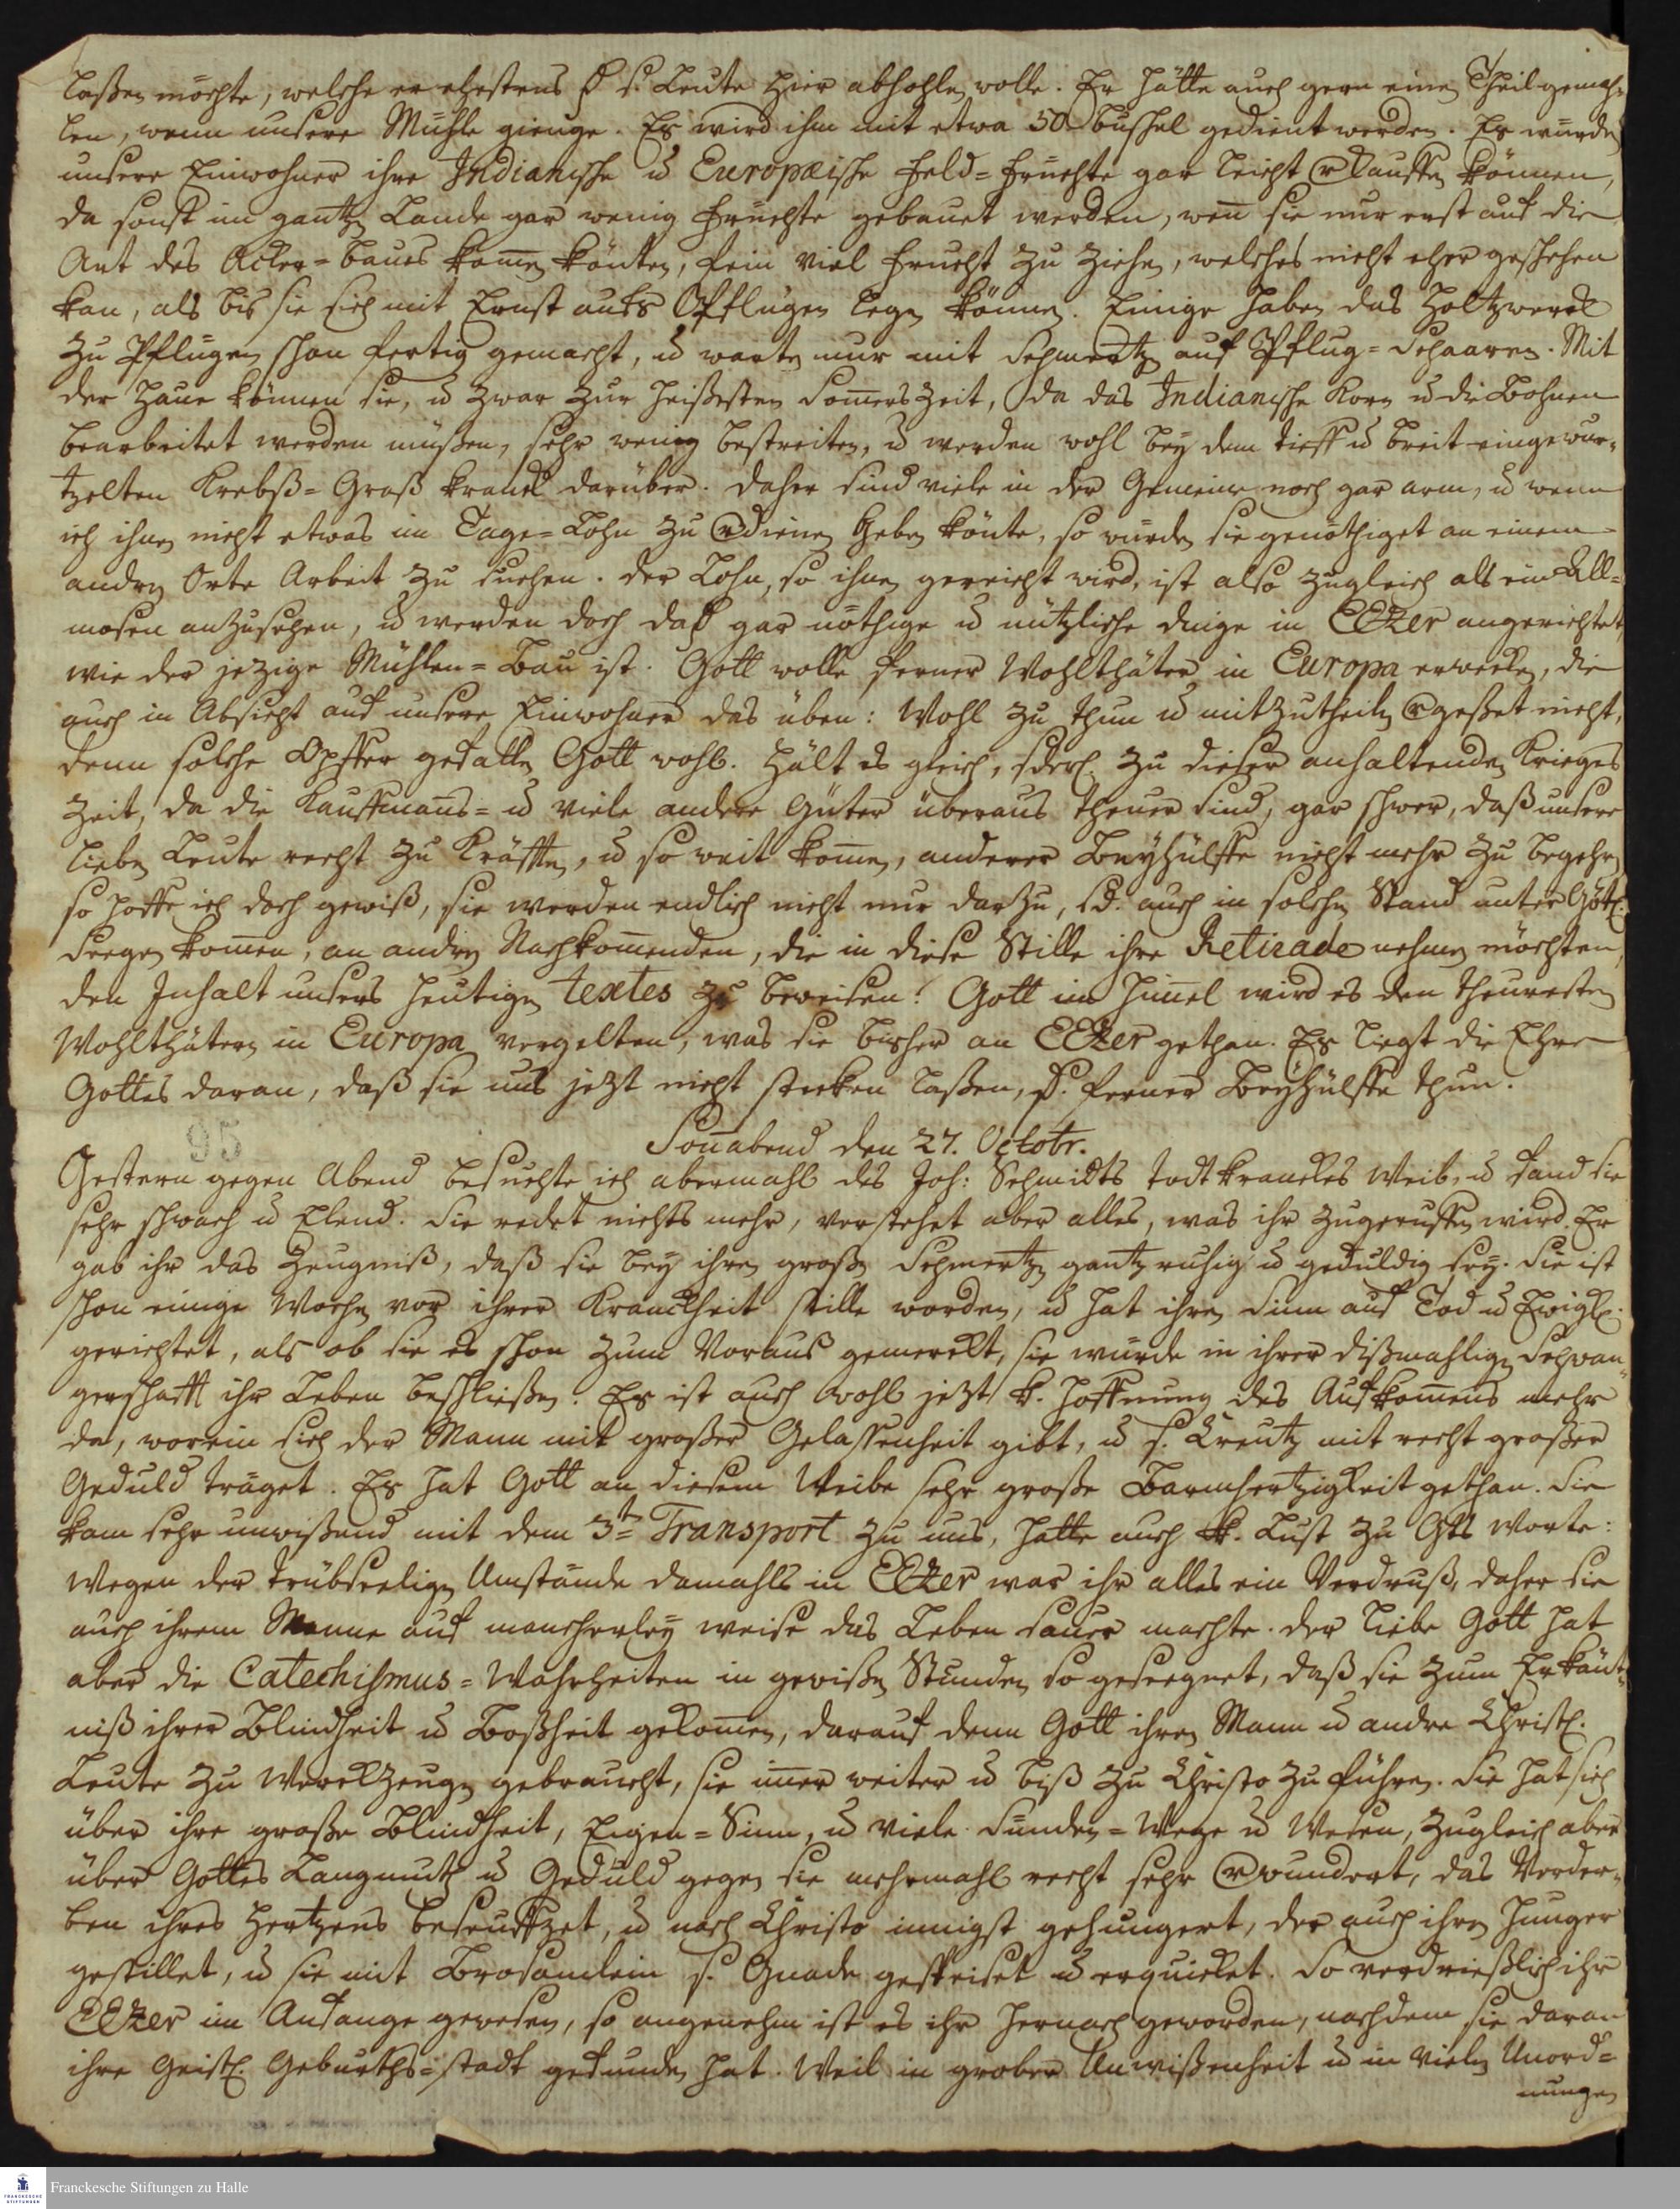 laßen möchte, welche er ehestens d. s. Leute hier abhohlen wolle. Er hätte auch gern einen Theil gemah-
len, wenn unsere Mühle gienge. Es wird ihm mit etwa 50 bushel gedient werden. Es würden
unsere Einwohner ihre Indianische u. Europæische Feld=Früchte gar leicht verkauffen können,
da sonst im gantzen Lande gar wenig Früchte gebauet werden, weñ sie nur erst auf die
Art des Acker=baues kom̃en könten, fein viel Frucht zu ziehen, welches nicht eher geschehen
kan, als bis sie sich mit Ernst aufs Pflügen legen können. Einige haben das Holtzwerck
zu Pflügen schon fertig gemacht, u. warten nur mit Schmertzen auf Pflug=Schaaren. Mit
der Haue können sie, u. zwar zur heißesten Som̃ers Zeit, da das Indianische Korn u. die Bohnen
bearbeitet werden müßen, sehr wenig bestreiten, u. werden wohl bey dem tieff u. breit eingewur-
tzelten Krebß=Graß kranck darüber. Daher sind viele in der Gemeine noch gar arm, u. wenn
ich ihnen nicht etwas im Tage=Lohn zu verdienen geben könte, so würden sie genöthiget an einem
andern Orte Arbeit zu suchen. Der Lohn, so ihnen gereicht wird, ist also zugleich als ein All-
mosen anzusehen, u. werden doch dad. gar nöthige u. nützliche Dinge in EbEzer angerichtet,
wie der jezige Mühlen=Bau ist. Gott wolle ferner Wohlthäter in Europa erwecken, die
auch in Absicht auf unsere Einwohner das üben: Wohl zu thun u. mitzutheilen vergeßet nicht,
denn solche Opffer gefallen Gott wohl. Hält es gleich, sderl. zu dieser anhaltenden Krieges
Zeit, da die Kauffmañs= u. viele andere Güter überaus theuer sind, gar schwer, daß unsere
lieben Leute recht zu Kräfften, u. so weit kom̃en, anderer Beyhülffe nicht mehr zu begehren
so hoffe ich doch gewiß, sie werden endlich nicht nur darzu, sd. auch in solchen Stand unter Göttl.
Seegen kom̃en, an andern Nachkom̃enden, die in diese Stille ihre Retirade nehmen möchten,
den Inhalt unsers heutigen Textes zu beweisen. Gott im Him̃el wird es den theuresten
Wohlthätern in Europa vergelten, was sie bisher an EbEzer gethan. Es liegt die Ehre
Gottes daran, daß sie uns jetzt nicht stecken laßen, sd. ferner Beyhülffe thun.
95
Soñabend den 27. Octobr.
Gestern gegen Abend besuchte ich abermahl des Joh: Schmidts todtkranckes Weib, u. fand sie
sehr schwach u. Elend. Sie redet nichts mehr, verstehet aber alles, was ihr zugeruffen wird. Er
gab ihr das Zeugniß, daß sie bey ihren großen Schmertzen gantz ruhig u. geduldig sey. Sie ist
schon einige Wochen vor ihrer Kranckheit stille worden, u. hat ihren Sinn auf Tod u. Ewigk.
gerichtet, als ob sie es schon zum Voraus gemerckt, sie würde in ihrer dißmahligen Schwan-
gerschafft ihr Leben beschließen. Es ist auch wohl jetzt k. Hoffnung des Aufkom̃ens mehr
da, worein sich der Mann mit großer Gelassenheit gibt, u. s. Creutz mit recht großer
Geduld träget. Es hat Gott an diesem Weibe sehr große Barmhertzigkeit gethan. Sie
kam sehr unwißend mit dem 3ten Transport zu uns, hatte auch k. Lust zu Gts Worte:
Wegen der trübseeligen Umstände damahls in EbEzer war ihr alles ein Verdruß, daher sie
auch ihrem Manne auf mancherley weise das Leben sauer machte. Der liebe Gott hat
aber die Catechismus=Wahrheiten in gewißen Stunden so geseegnet, daß sie zum Erkänt-
niß ihrer Blindheit u. Boßheit gekom̃en, darauf denn Gott ihren Mann u. andre Christl.
Leute zu Werckzeugen gebraucht, sie im̃er weiter u. biß zu Christo zu führen. Sie hat sich
über ihre große Blindheit, Eigen=Sinn, u. viele Sünden=Wege u. Wesen, zugleich aber
über Gottes Langmuth u. Geduld gegen sie mehrmahl recht sehr verwundert, das Verder-
ben ihres Hertzens beseuffzet, u. nach Christo innigst gehungert, der auch ihren Hunger
gestillet, u. sie mit Brosamlein s. Gnade gespeiset u. erquicket. So verdrießlich ihr
EbEzer im Anfange gewesen, so angenehm ist es ihr hernach geworden, nachdem sie daran
ihre Geistl. Geburths=stadt gefunden hat. Weil in grober Unwißenheit u. in vielen Unord=
nungen
Franckesche Stiftungen zu Halle